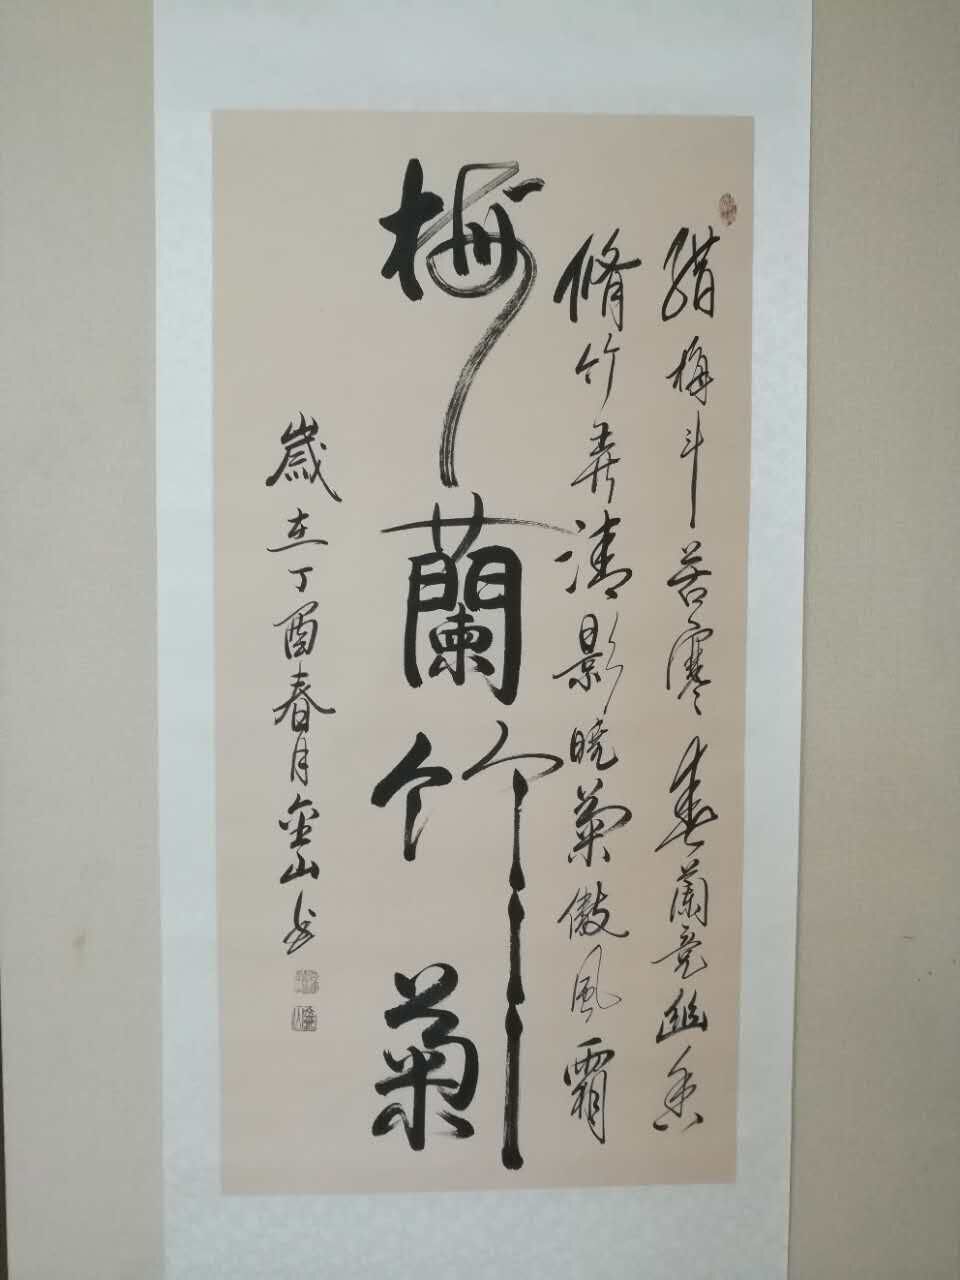 腊梅斗苦寒春蘭竞幽香
脩竹弄清影晓菊傲風霜
梅蘭竹菊
歲在丁酉春月金山书